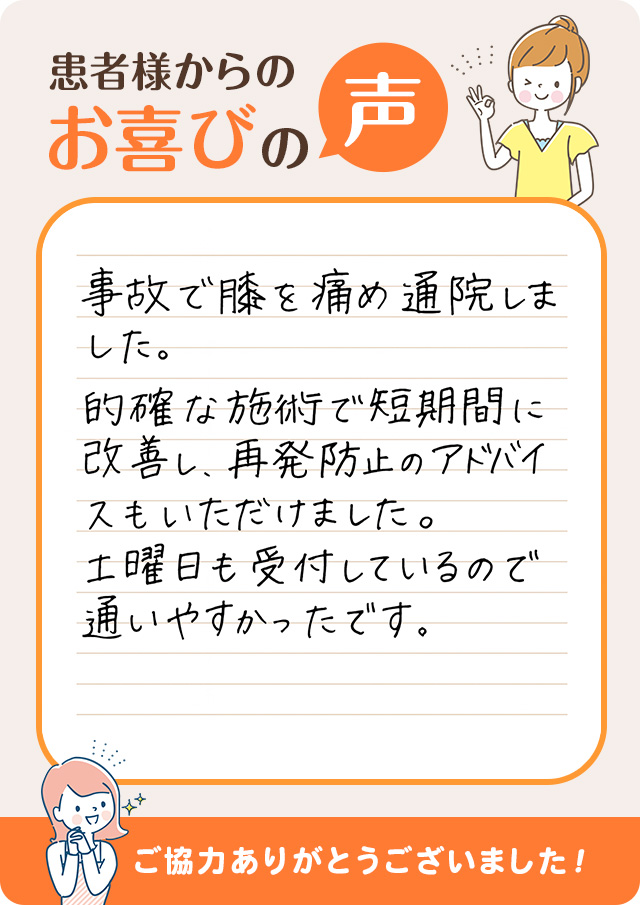 患者様からの
お喜びの声
事故で膝を痛め通院しま
した。
的確な施術で短期間に
改善し、再発防止のアドバイ
スもいただけました。
土曜日も受付しているので
通いやすかったです。
ご協力ありがとうございました！